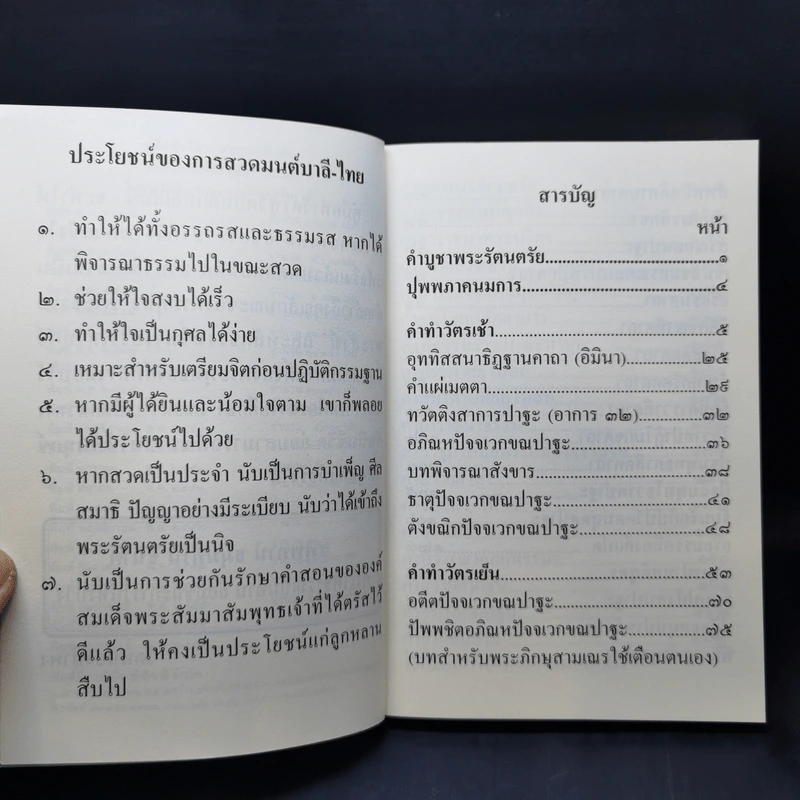 ประโยชน์ของการสวดมนต์บาลี-ไทย
๑. ทำให้ได้ทั้งอรรถรสและธรรมรส หากได้
พิจารณาธรรมไปในขณะสวด
๒. ช่วยให้ใจสงบได้เร็ว
๓. ทำให้ใจเป็นกุศลได้ง่าย
๔. เหมาะสำหรับเตรียมจิตก่อนปฏิบัติกรรมฐาน
๕. หากมีผู้ได้ยินและน้อมใจตาม เขาก็พลอย
ได้ประโยชน์ไปด้วย
๖. หากสวดเป็นประจำ นับเป็นการบำเพ็ญ ศีล
สมาธิ ปัญญาอย่างมีระเบียบ นับว่าได้เข้าถึง
พระรัตนตรัยเป็นนิจ
๗. นับเป็นการช่วยกันรักษาคำสอนขององค์
สมเด็จพระสัมมาสัมพุทธเจ้าที่ได้ตรัสไว้
ดีแล้ว ให้คงเป็นประโยชน์แก่ลูกหลาน
สืบไป
สารบัญ
หน้า
คำบูชาพระรัตนตรัย..............................๑
ปุพพภาคนมการ..................................๔
คำทำวัตรเช้า.......................................๕
อุททิสสนาธิฏฐานคาถา (อิมินา)................๒๕
คำแผ่เมตตา.......................................๒๙
ทวัตติงสาการปาฐะ (อาการ ๓๒)..............๓๒
อภิณหปัจจเวกขณปาฐะ.........................๓๖
บทพิจารณาสังขาร................................๓๘
ธาตุปัจจเวกขณปาฐะ.............................๔๑
ตังขณิกปัจจเวกขณปาฐะ........................๔๘
คำทำวัตรเย็น......................................๕๓
อตีตปัจจเวกขณปาฐะ............................๗๐
ปัพพชิตอภิณหปัจจเวกขณปาฐะ...............๗๕
(บทสำหรับพระภิกษุสามเณรใช้เตือนตนเอง)